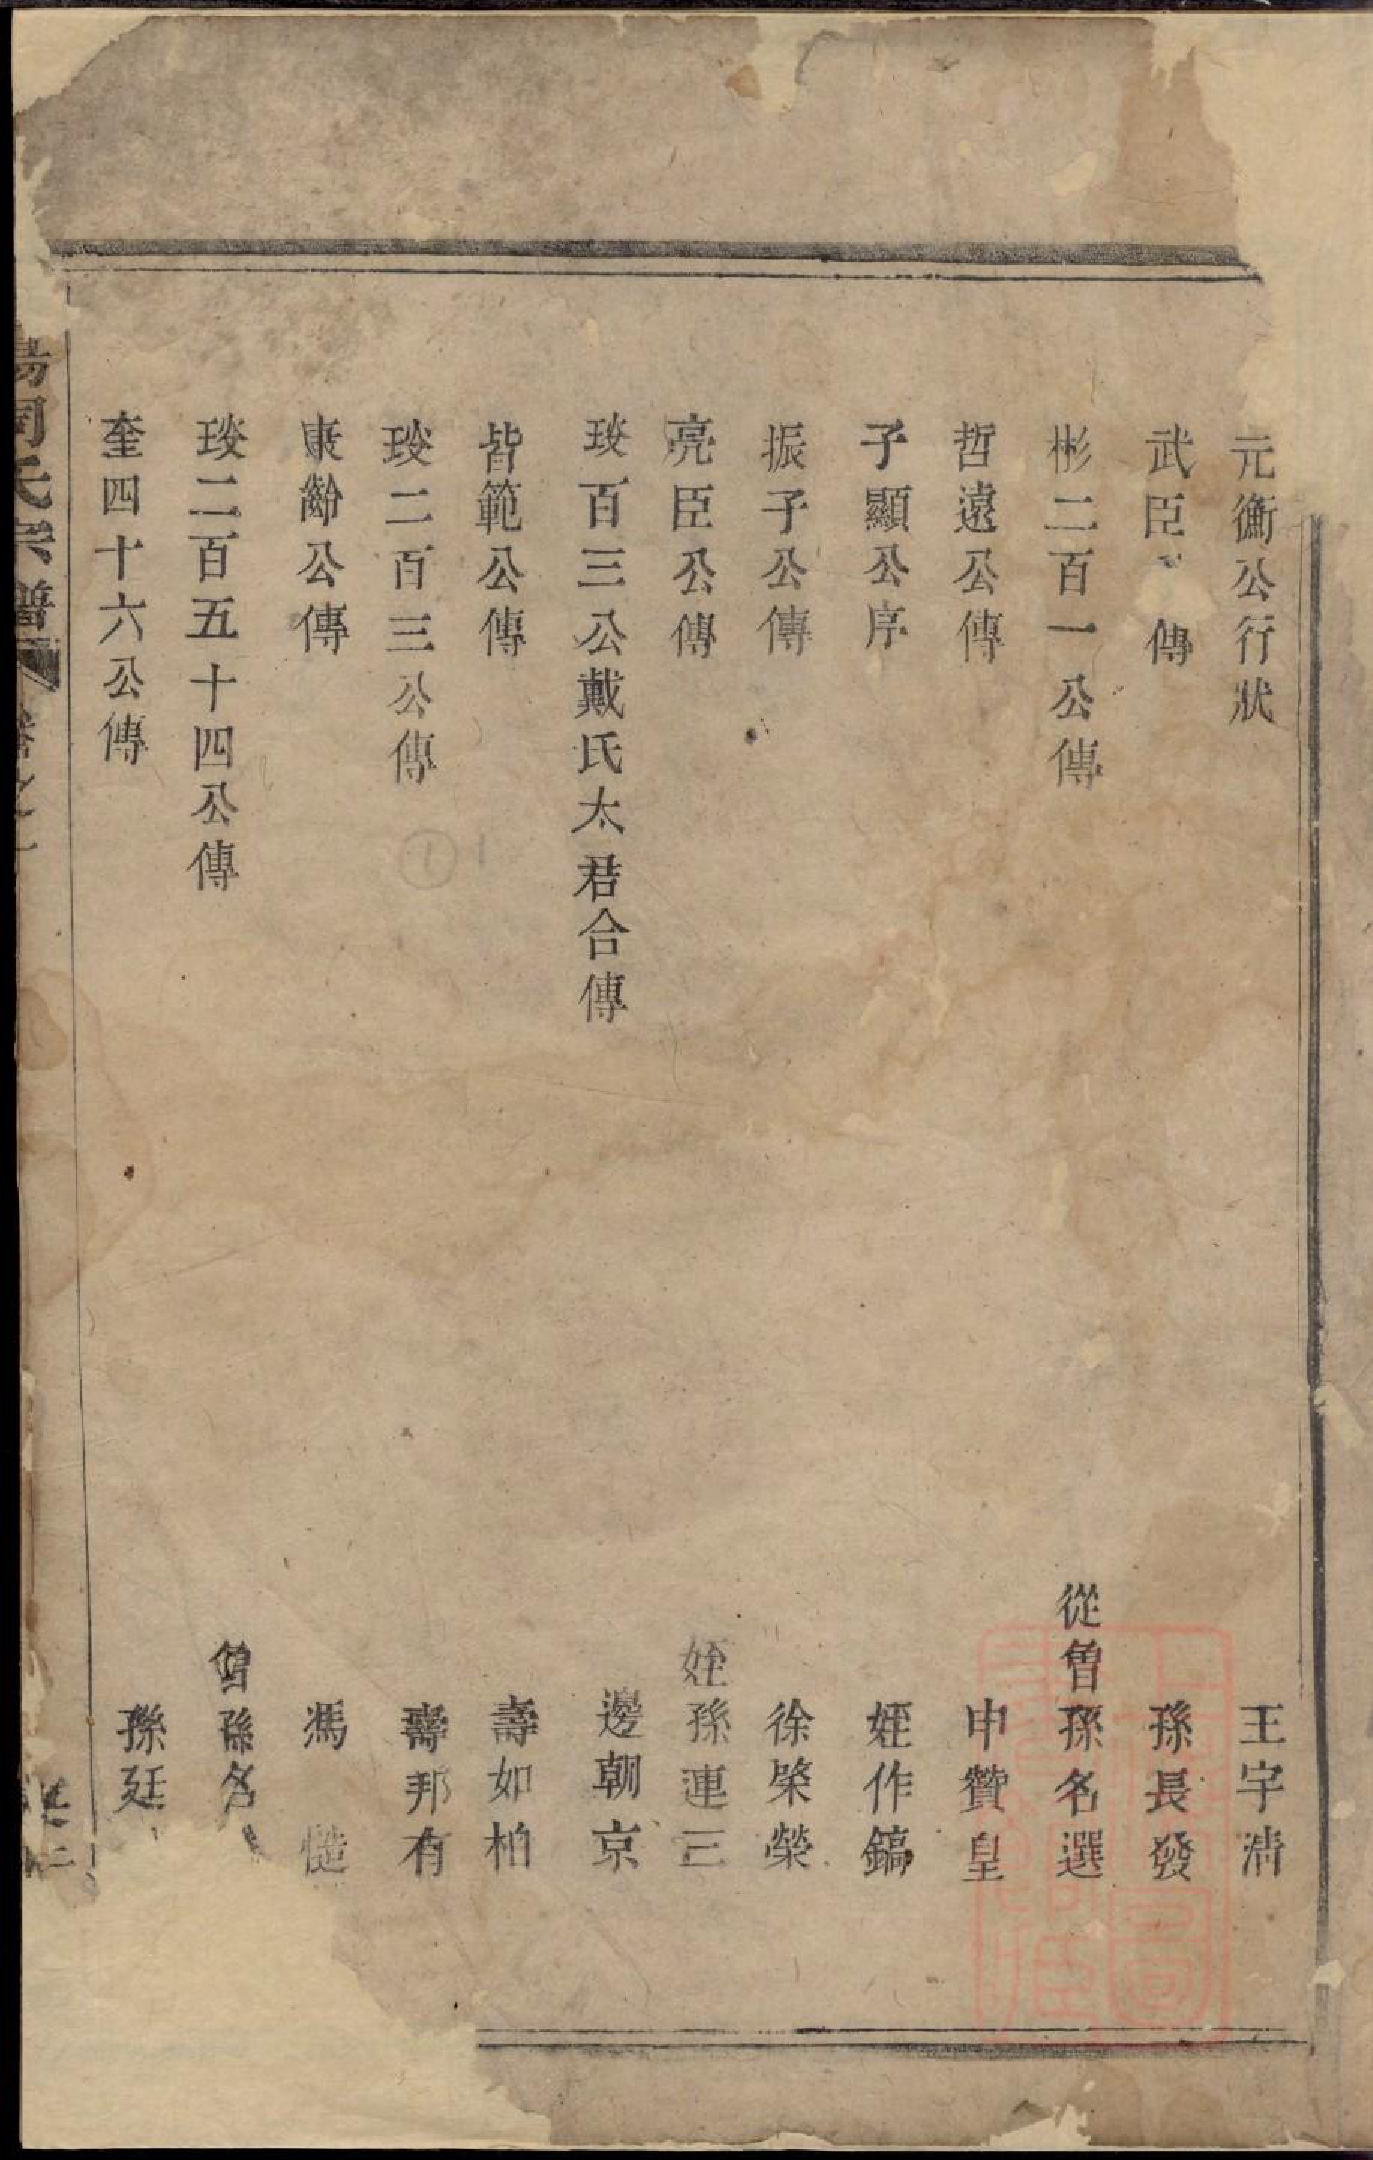 元衡公行狀 王宇淸
武臣 傳 孫長發
彬二百一公傳 從曾孫名選
哲遠公傳 申贊皇
子顯公序 姪作鎬
振子公傳 徐棨榮
亮臣公傳 姪孫連三
琰百三公戴氏太君合傳 邊朝京
皆範公傳 壽如柏
琰二百三公傳 壽邦有
康齡公傳 馮
琰二百五十四公傳 曾孫名
奎四十六公傳 孫廷
周氏宗譜 卷之一